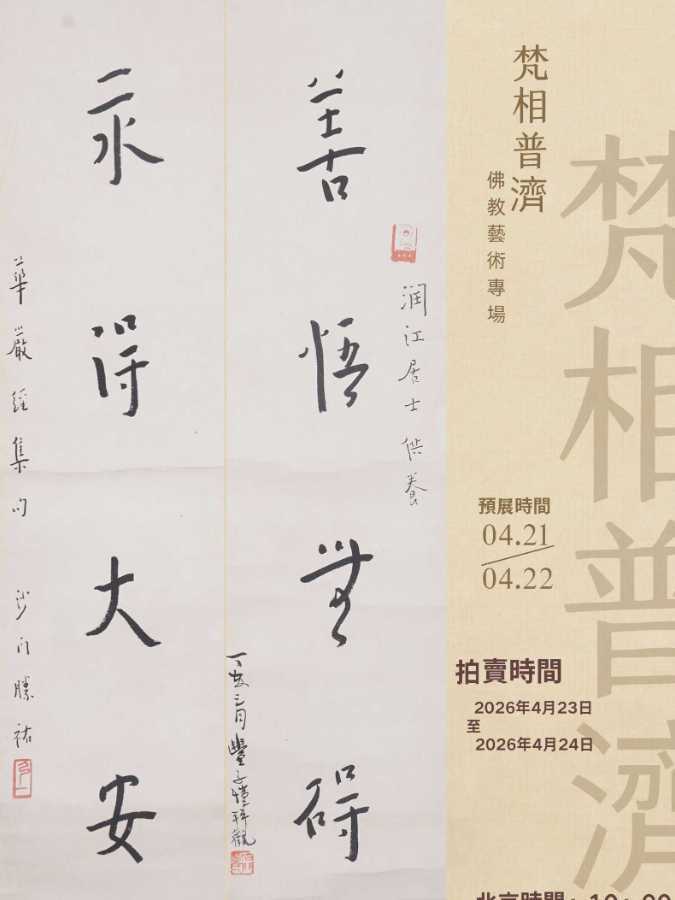 善悟無碍
润江居士供養
永得大安
華嚴經集句 沙门勝祐
丁亥三月豐子愷拜觀
梵相普濟
佛教藝術專場
梵相普濟
預展時間
04.21
04.22
拍賣時間
2026年4月23日
至
2026年4月24日
北京時間：10：00